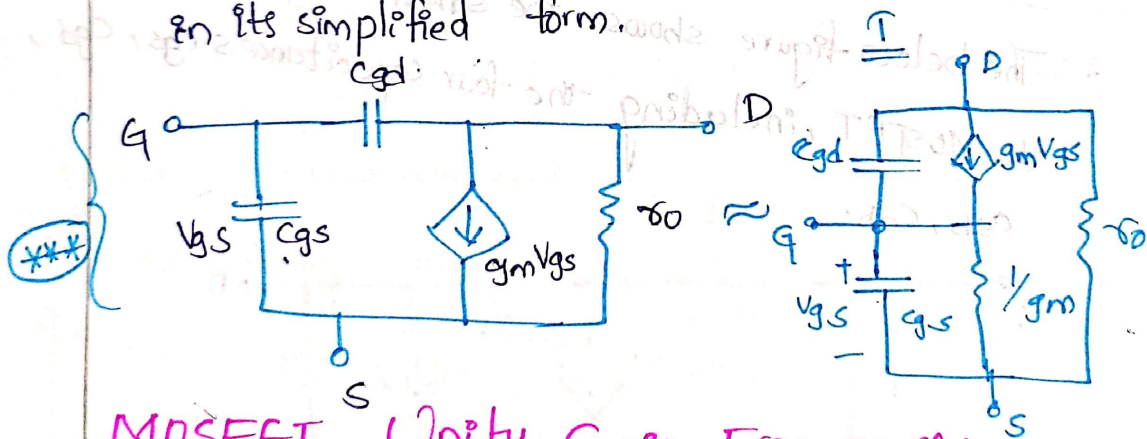 in its simplified form.
T
Cgd
G
D
Vgs
Cgs
gmVgs
ro
≈
S
***
D
Cgd
gmVgs
G
ro
+
Vgs
-
Cgs
1/gm
S
MOSFET Unity